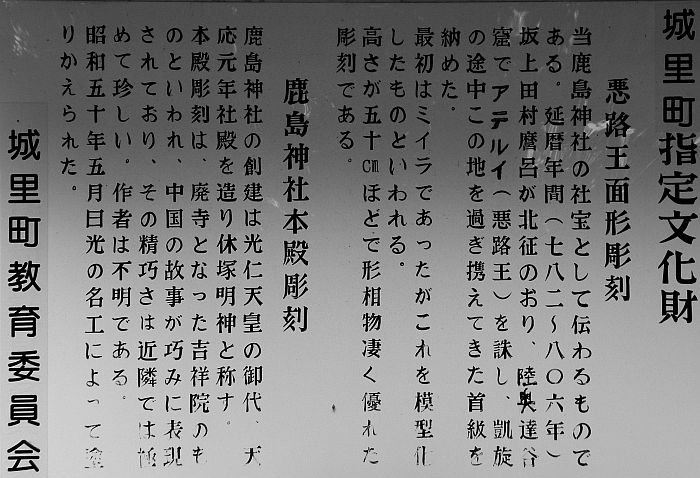 城里町指定文化財
悪路王面形彫刻
当鹿島神社の社宝として伝わるもので
ある。延暦年間(七八二～八〇六年)
坂上田村麿呂が北征のおり、陸奥達谷
窟でアテルイ(悪路王)を誅し、凱旋
の途中この地を過ぎ携えてきた首級を
納めた。
最初はミイラであったがこれを模型化
したものといわれる。
高さが五十㎝ほどで形相物凄く優れた
彫刻である。
鹿島神社本殿彫刻
鹿島神社の創建は光仁天皇の御代、天
応元年社殿を造り休塚明神と称す。
本殿彫刻は、廃寺となった吉祥院のも
のといわれ、中国の故事が巧みに表現
されており、その精巧さは近隣では極
めて珍しい。作者は不明である。
昭和五十年五月日光の名工によって塗
りかえられた。
城里町教育委員会